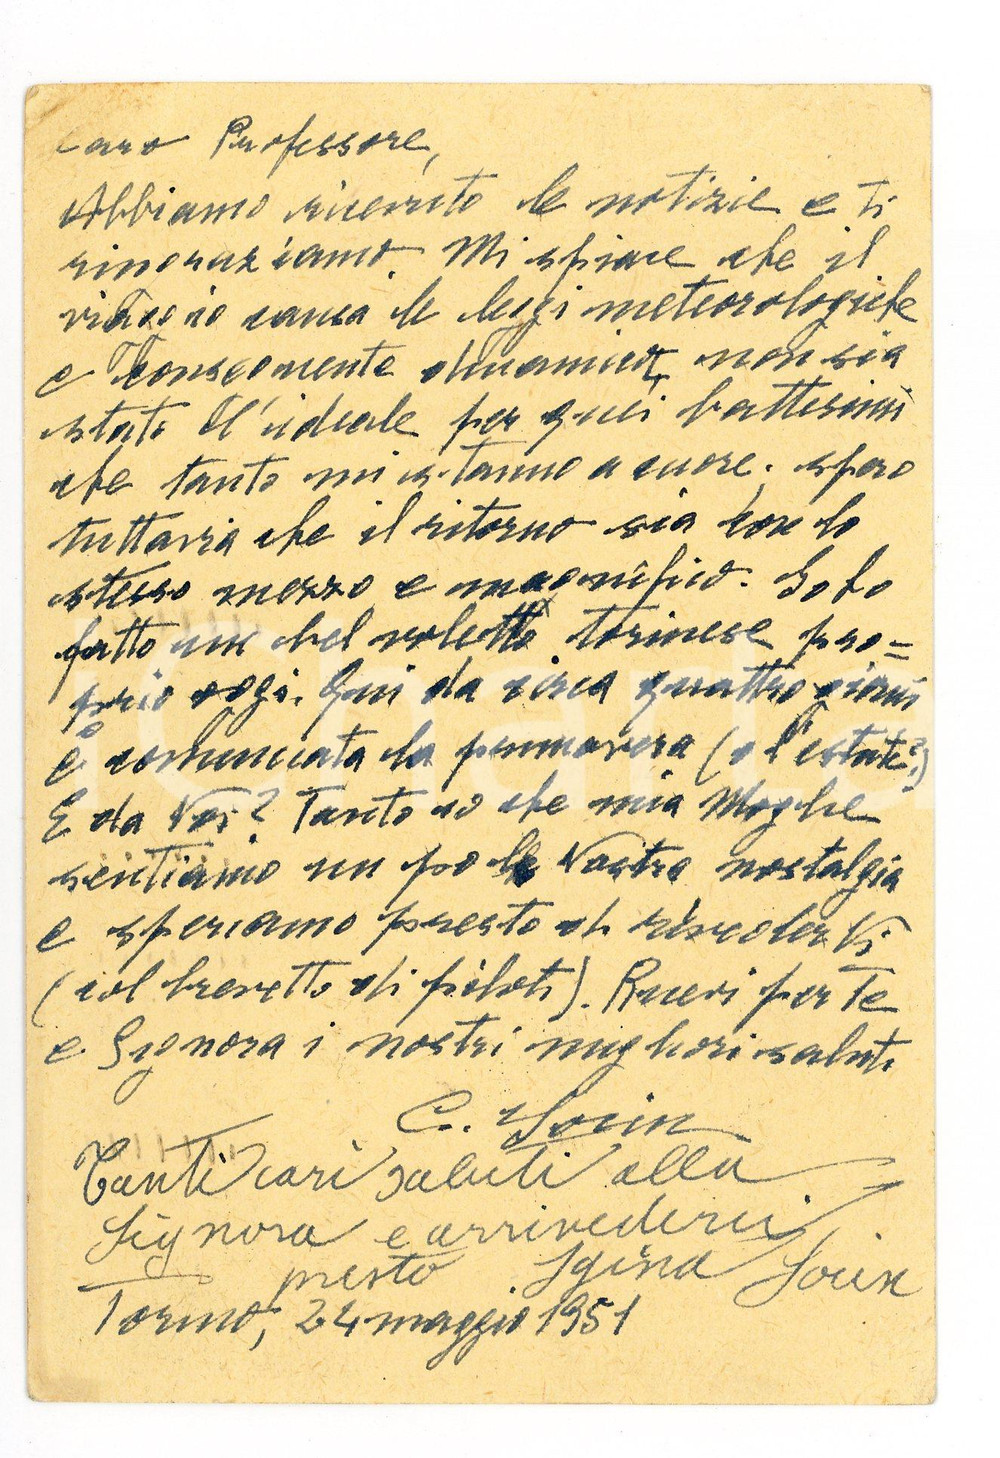 Caro Professore,
Abbiamo ricevuto le notizie e ti
ringraziamo. Mi spiace che il
viaggio causa le leggi meteorologiche
e conseguente dinamica, non sia
stato l'ideale per quei battesimi
che tanto mi stanno a cuore; spero
tuttavia che il ritorno sia con lo
stesso mezzo e magnifico. Io ho
fatto un bel voletto torinese pro=
prio oggi. Qui da circa quattro giorni
è cominciata la primavera (o l'estate?)
E da Voi? Tanto io che mia Moglie
sentiamo un po la Vostra nostalgia
e speriamo presto di riveder Vi
(col brevetto di piloti). Ricevi per Te
e Signora i nostri migliori saluti
C.
Tanti cari saluti alla
Signora e arrivederci
presto
Torino, 24 maggio 1951